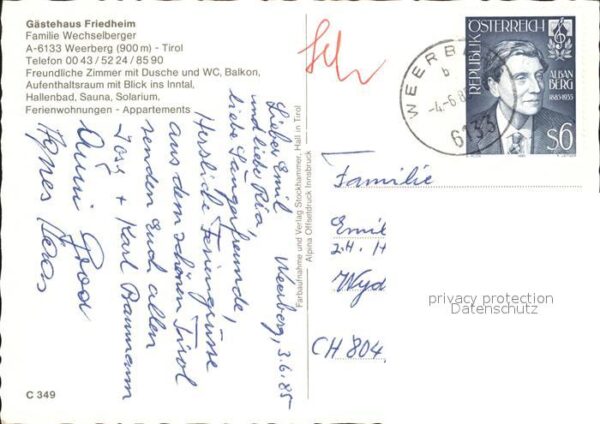 Gästehaus Friedheim
Familie Wechselberger
A-6133 Weerberg (900 m) - Tirol
Telefon 00 43 / 52 24 / 85 90
Freundliche Zimmer mit Dusche und WC, Balkon,
Aufenthaltsraum mit Blick ins Inntal,
Hallenbad, Sauna, Solarium,
Ferienwohnungen - Appartements
Weerberg, 3.6.85
Lieber Emil
und liebe Ria,
liebe Sängerfreunde,
Herzliche Feriengrüsse
aus dem schönen Tirol
senden Euch allen
José + Karl Baumann
Agnes Haas
C 349
Farbaufnahme und Verlag Stockhammer, Hall in Tirol
Alpina Offsetdruck Innsbruck
WEERB
b
-4.-6.8
6133
REPUBLIK ÖSTERREICH
ALBAN
BERG
1885-1935
S6
Familie
Emil
z.H. H
Wyd
CH 804
privacy protection
Datenschutz